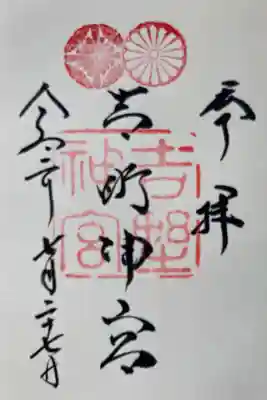 奉拝
吉野神宮
吉野神宮
令和二年七月二十七日